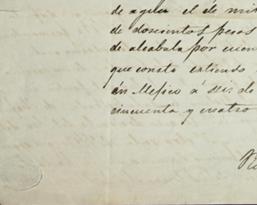 de agua el de mi
de doscientos pesos
de alcabala por cuen
que consta estiendo
én Mejico á
cincuenta y cuatro